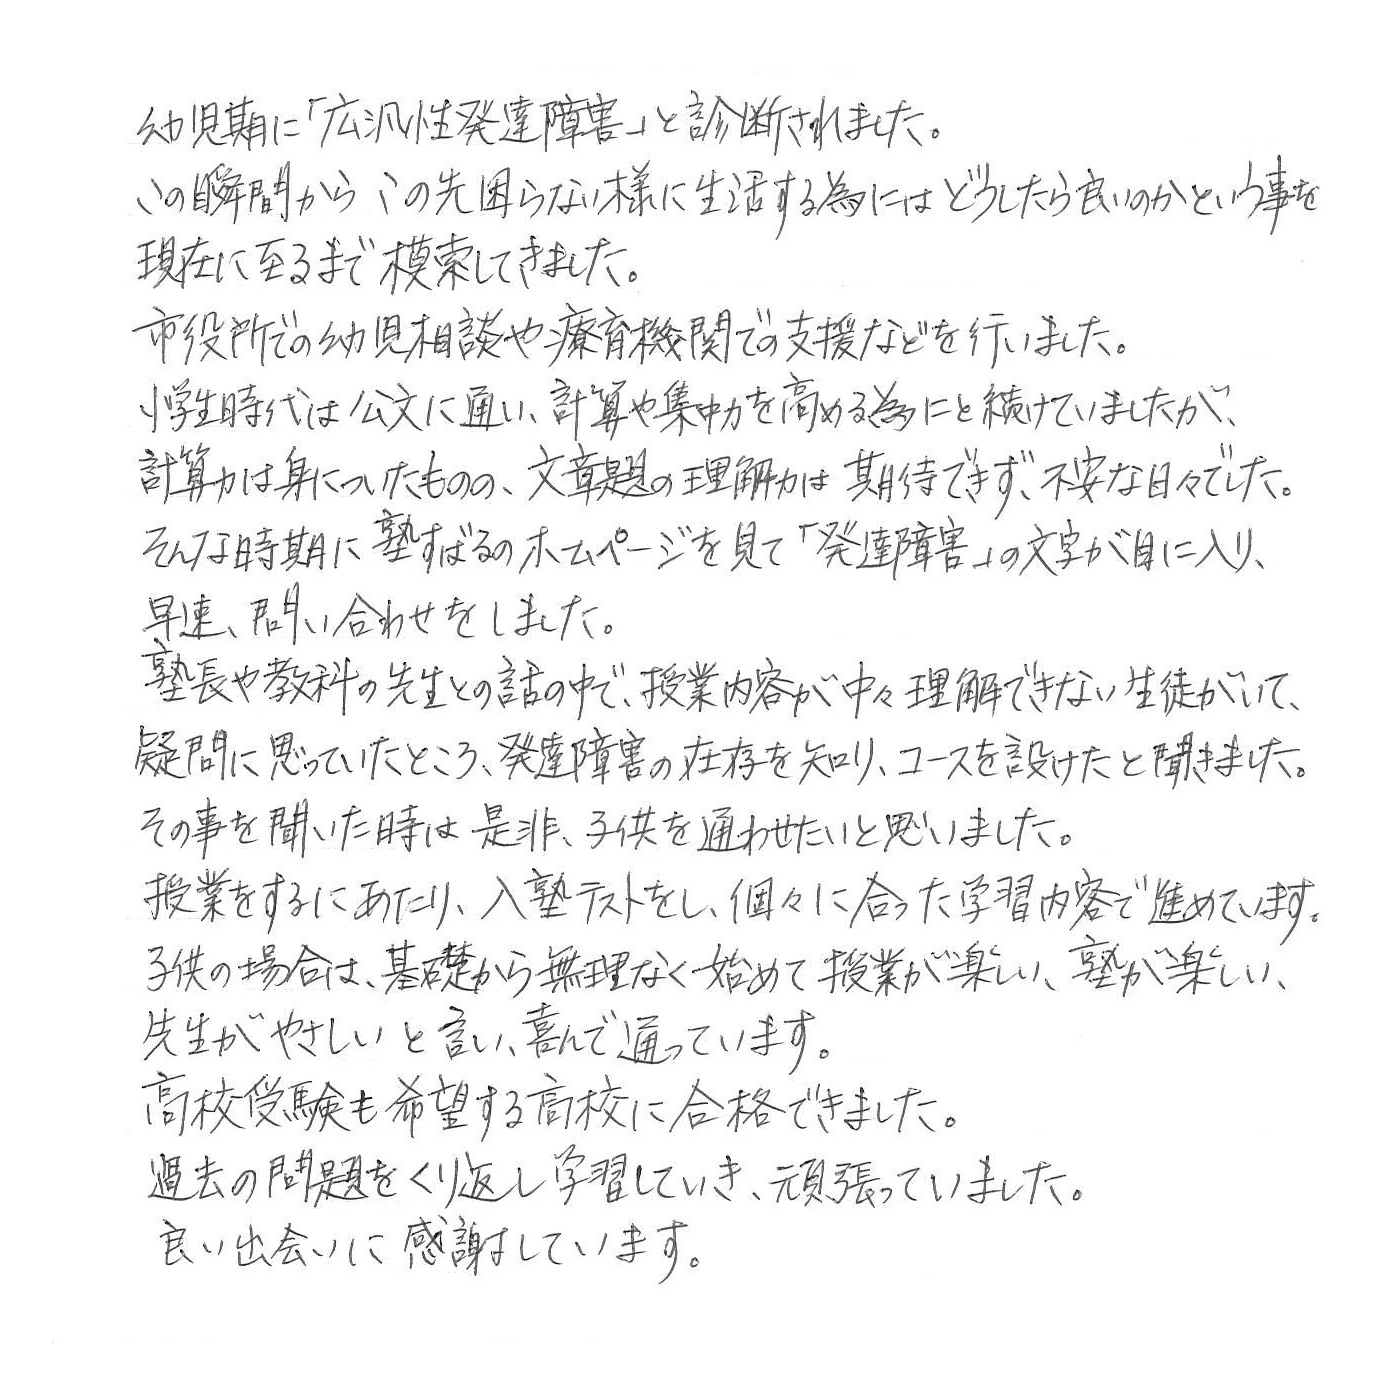 幼児期に「広汎性発達障害」と診断されました。
この瞬間から この先困らない様に生活する為にはどうしたら良いのかという事を
現在に至るまで模索してきました。
市役所での幼児相談や療育機関での支援などを行いました。
小学生時代は公文に通い、計算や集中力を高める為にと続けていましたが、
計算力は身についたものの、文章題の理解力は期待できず、不安な日々でした。
そんな時期に塾すばるのホームページを見て「発達障害」の文字が目に入り、
早速、問い合わせをしました。
塾長や教科の先生との話の中で、授業内容が中々理解できない生徒がいて、
疑問に思っていたところ、発達障害の存在を知り、コースを設けたと聞きました。
その事を聞いた時は是非、子供を通わせたいと思いました。
授業をするにあたり、入塾テストをし、個々に合った学習内容で進めています。
子供の場合は、基礎から無理なく始めて授業が楽しい、塾が楽しい、
先生がやさしいと言い、喜んで通っています。
高校受験も希望する高校に合格できました。
過去の問題をくり返し学習していき、頑張っていました。
良い出会いに感謝しています。